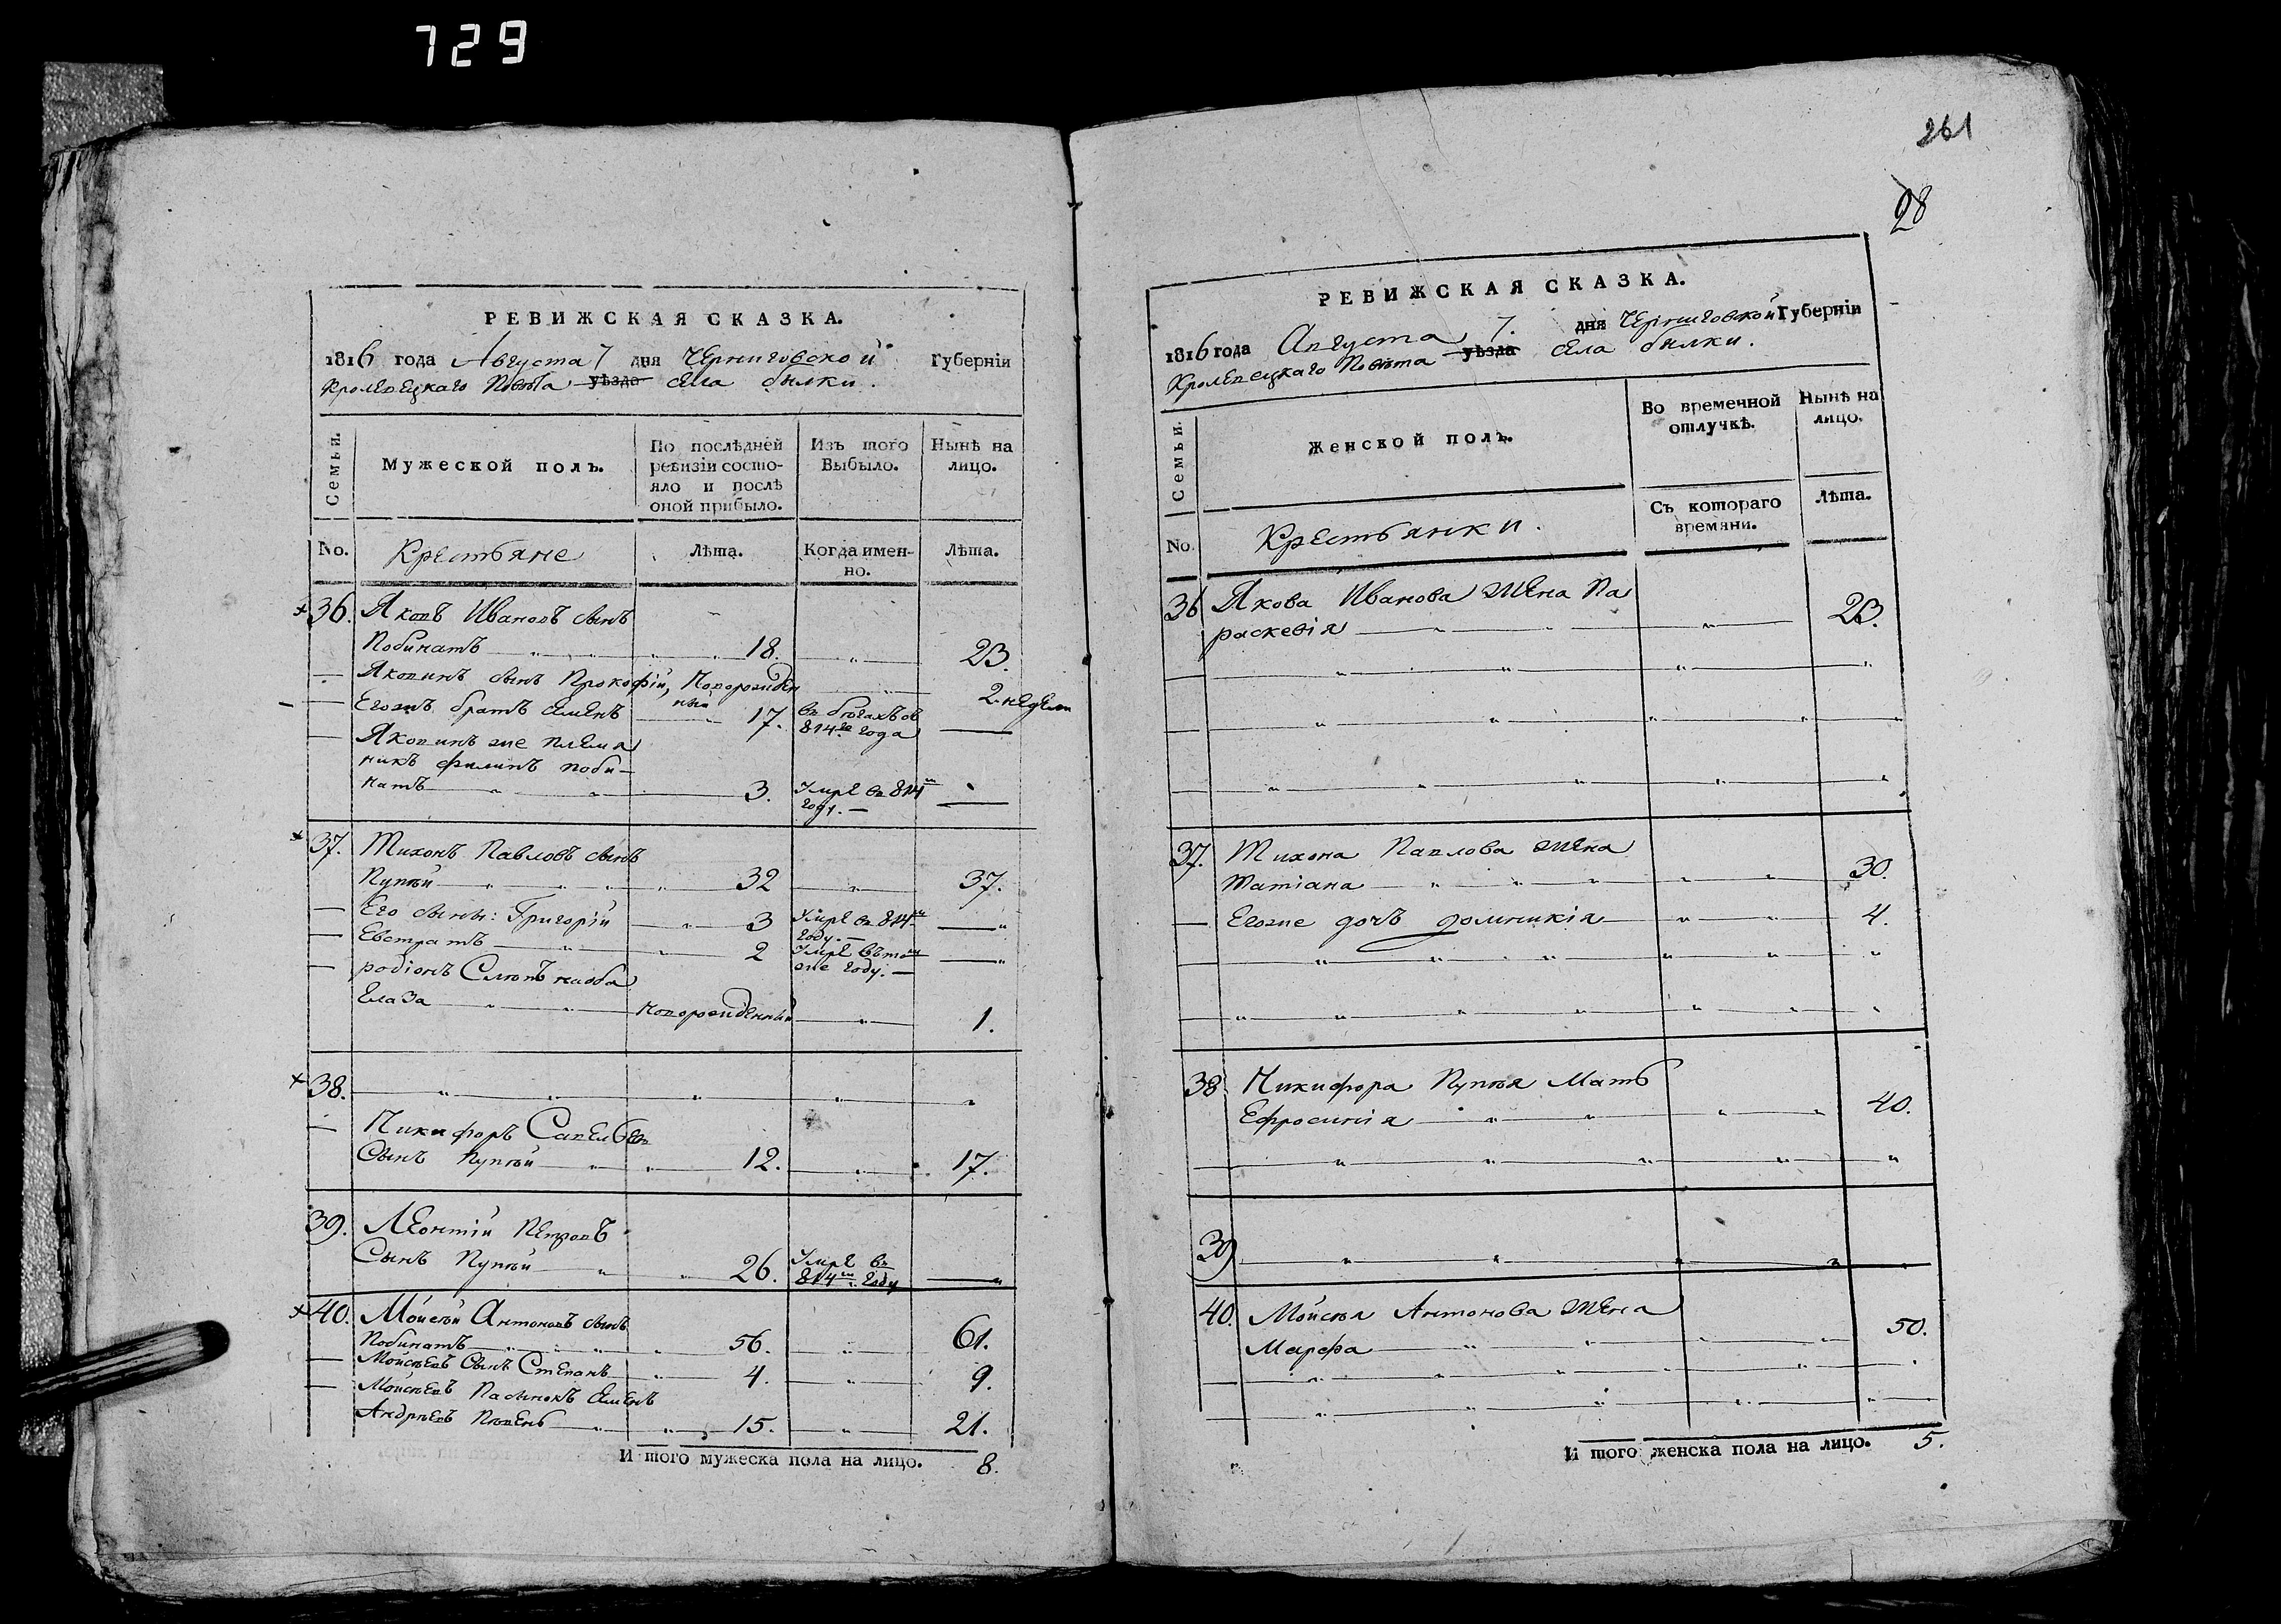 729
РЕВИЖСКАЯ СКАЗКА.
1816 года Августа 7 дня Черниговской Губерніи
Кролевецкаго Повѣта уѣзда села былки.
Семьи.
Мужеской полъ.
По послѣдней ревизіи состо-
яло и послѣ оной прибыло.
Изъ того Выбыло.
Нынѣ на лицо.
No.
Крестьяне
Лѣта.
Когда имен-
но.
Лѣта.
36. Яковъ Ивановъ сынъ
Побиматъ 18. 23.
Яковинъ сынъ Прокофій, Новорожден
ный 2 недели
Егожъ братъ Семенъ 17. въ бегахъ съ
814го года
Яковинъ же племя
никъ Филипъ Поби-
матъ 3. Умре въ 814м
году.
37. Тихонъ Павловъ сынъ
Пугѣй 32 37.
Его сыны: Григорій 3 Умре въ 814м
году.
Евстратъ 2 Умре въ том
же году.
родіонъ Слѣпъ на оба
глаза новорожденный 1.
38.
Никифоръ Савельевъ
Сынъ Пугѣй 12. 17.
39. Леонтій Петровъ
Сынъ Пугѣй 26. Умре въ
814м году
40. Мойсѣй Антоновъ сынъ
Побиматъ 56. 61.
Мойсѣевъ Сынъ Степанъ 4. 9.
Мойсѣевъ Пасынокъ Семенъ
Андрѣевъ 15. 21.
И того мужеска пола на лицо. 8.
261
28
РЕВИЖСКАЯ СКАЗКА.
1816 года Августа 7. дня Черниговской Губерніи
Кролевецкаго Повѣта уѣзда села былки.
Семьи.
Женской полъ.
Во времечной отлучкѣ.
Нынѣ на лицо.
No.
Крестьянки.
Съ котораго времяни.
Лѣта.
36 Якова Иванова жена Па
раскевія 23.
37. Тихона Павлова жена
Татіана 30.
Егоже дочъ домникія 4.
38 Никифора Пугѣя Мать
Ефросинія 40.
39
40. Мойсѣя Антонова жена
Марфа 50.
И того женска пола на лицо. 5.